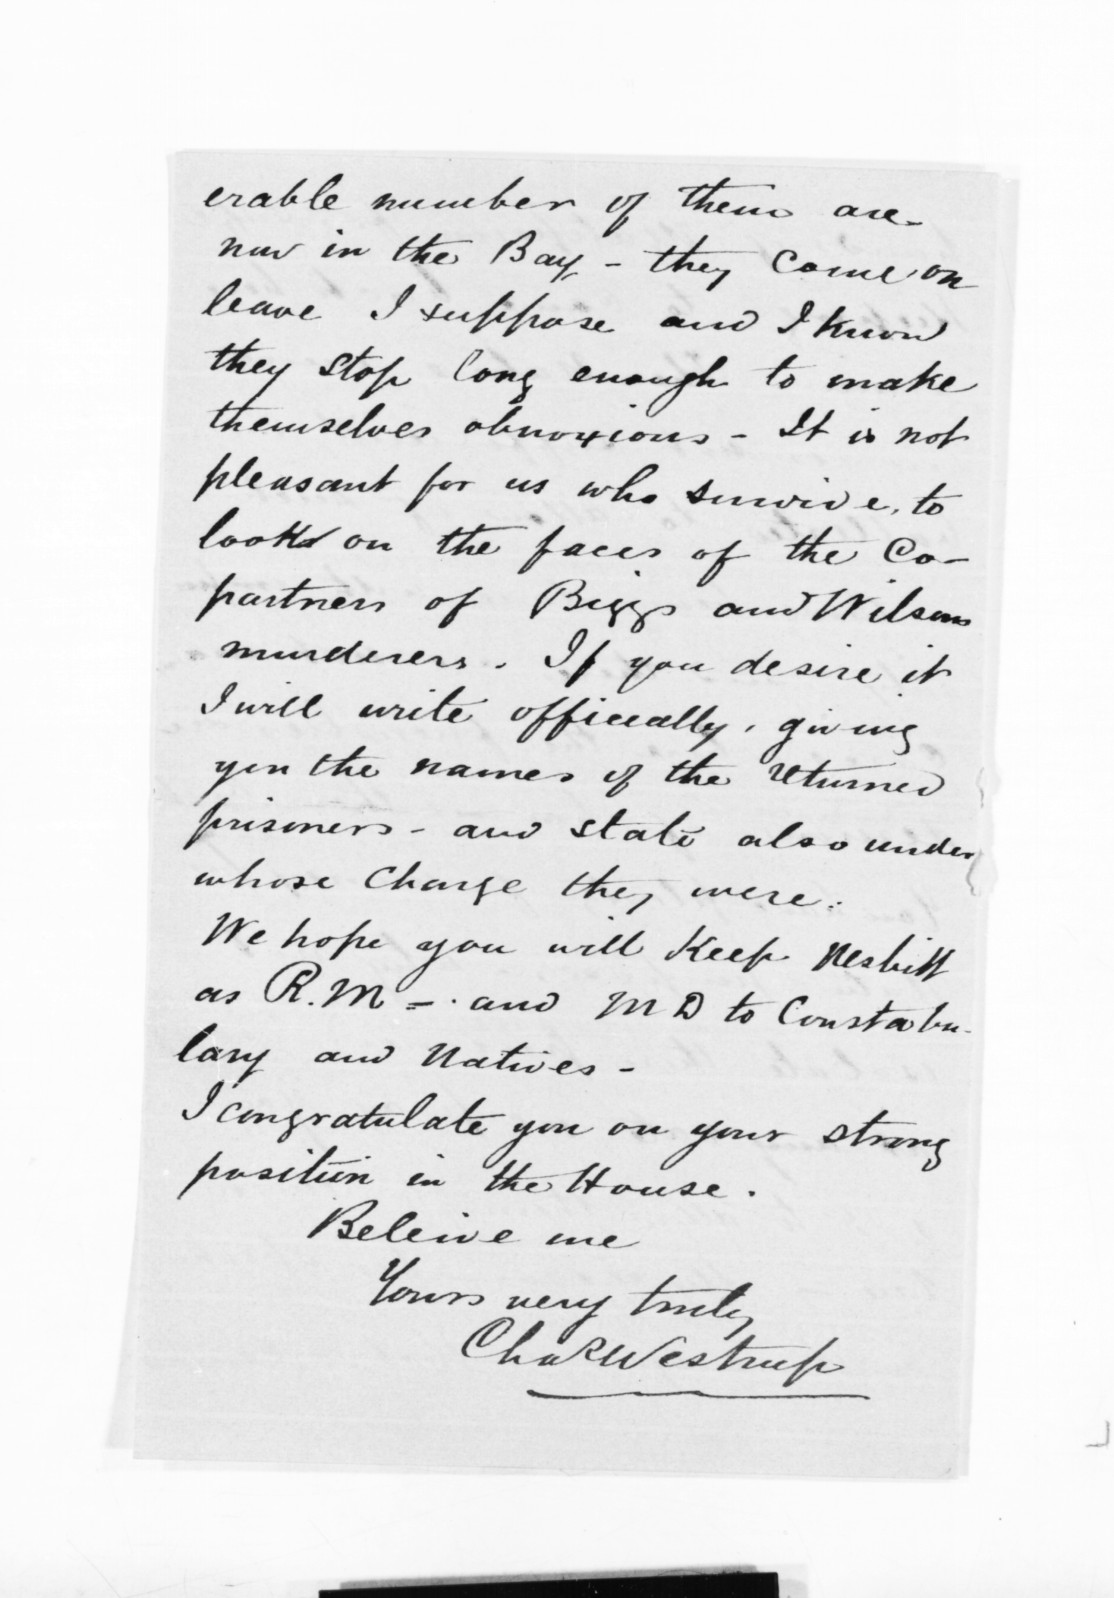 erable number of them are
now in the Bay - they come on
leave I suppose and I know
they stop long enough to make
themselves obnoxious - It is not
pleasant for us who survive, to
look on the faces of the Co-
partners of Biggs and Wilsons
murderers. If you desire it
I will write officially, giving
you the names of the returned
prisoners - and state also under
whose charge they were.
We hope you will keep Nesbitt
as R.M - and M D to Constabu-
lary and Natives -
I congratulate you on your strong
position in the House.
Beleive me
Yours very truly
Cha Westrup